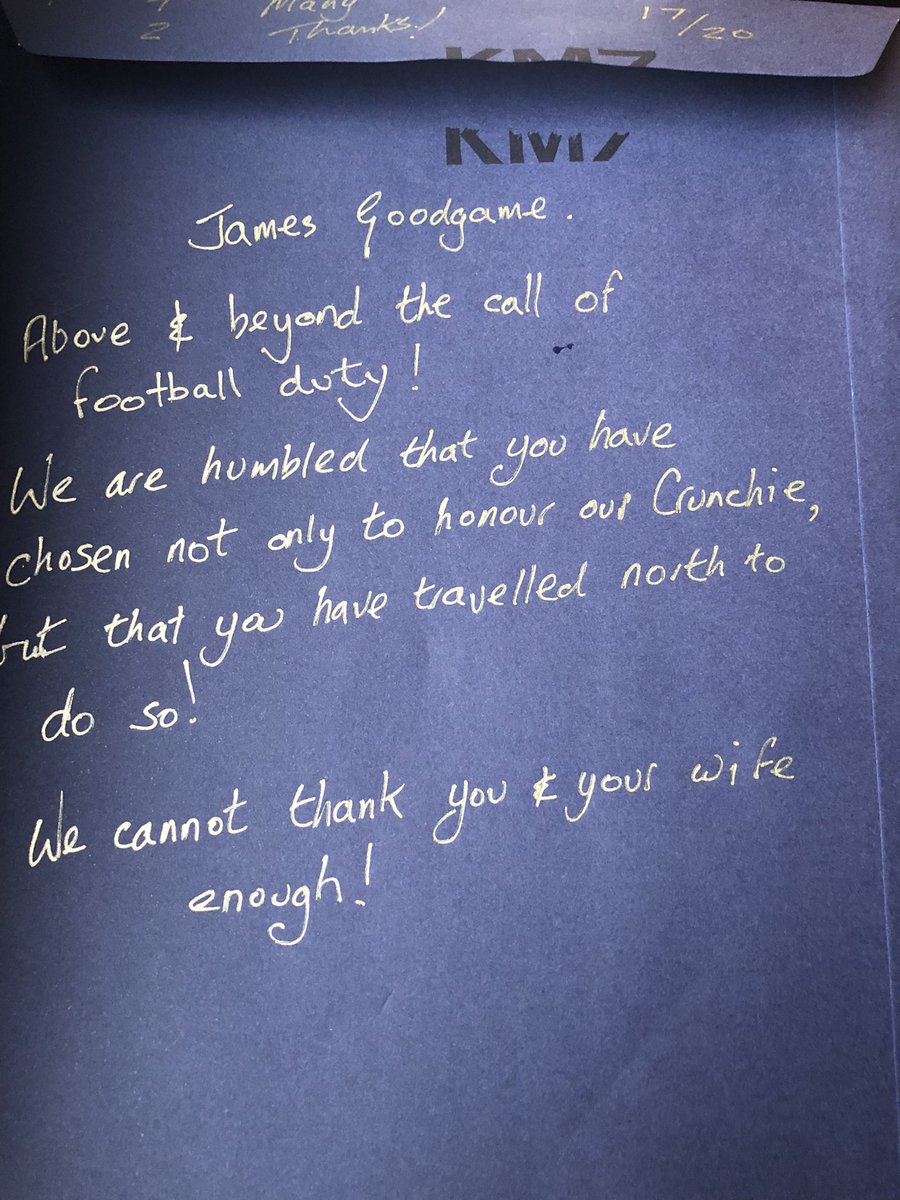 Many
2 Thanks! 17/20
James Goodgame.
Above & beyond the call of
football duty!
We are humbled that you have
chosen not only to honour our Crunchie,
but that you have travelled north to
do so!
We cannot thank you & your wife
enough!